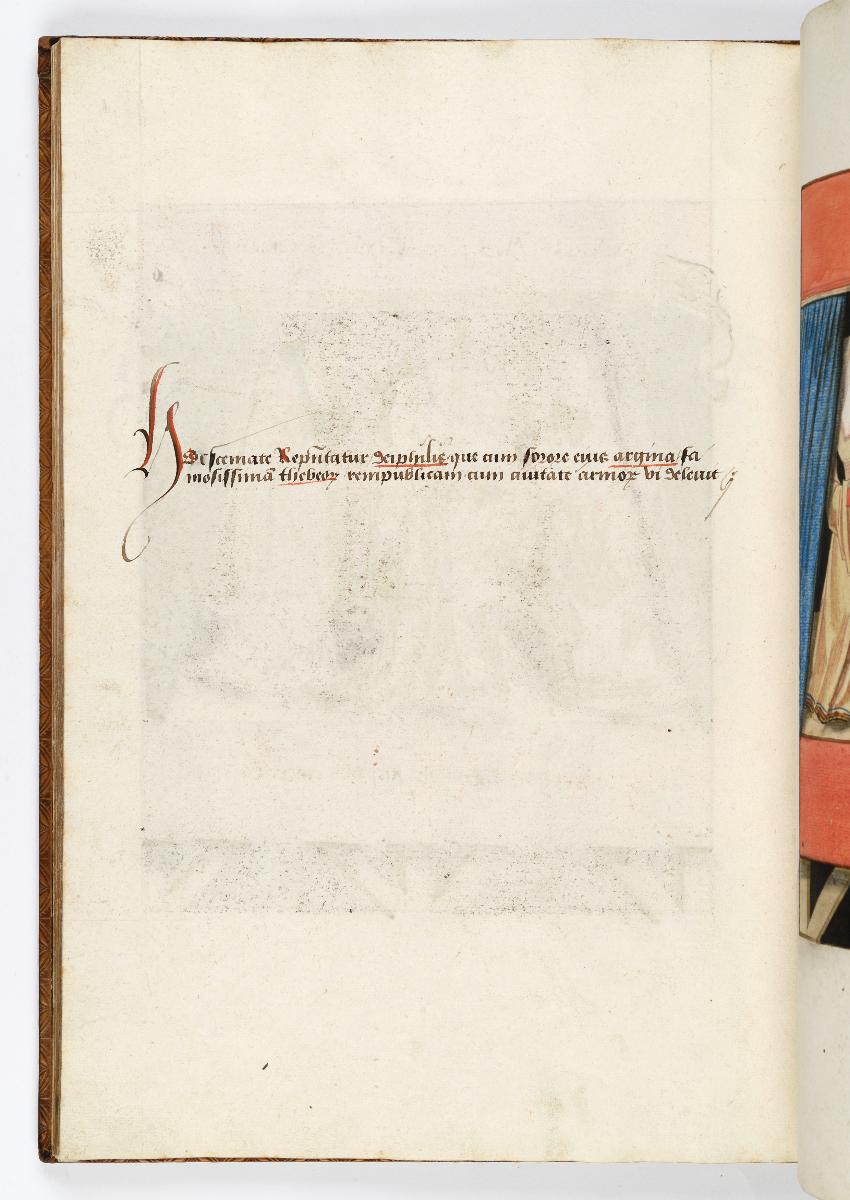 Hoc scemate Rep̄ntatur deiphilis que cum sorore eius argina fa
mosissimā thebeoꝝ rempublicam cum ciuitate armoꝝ vi deleuit